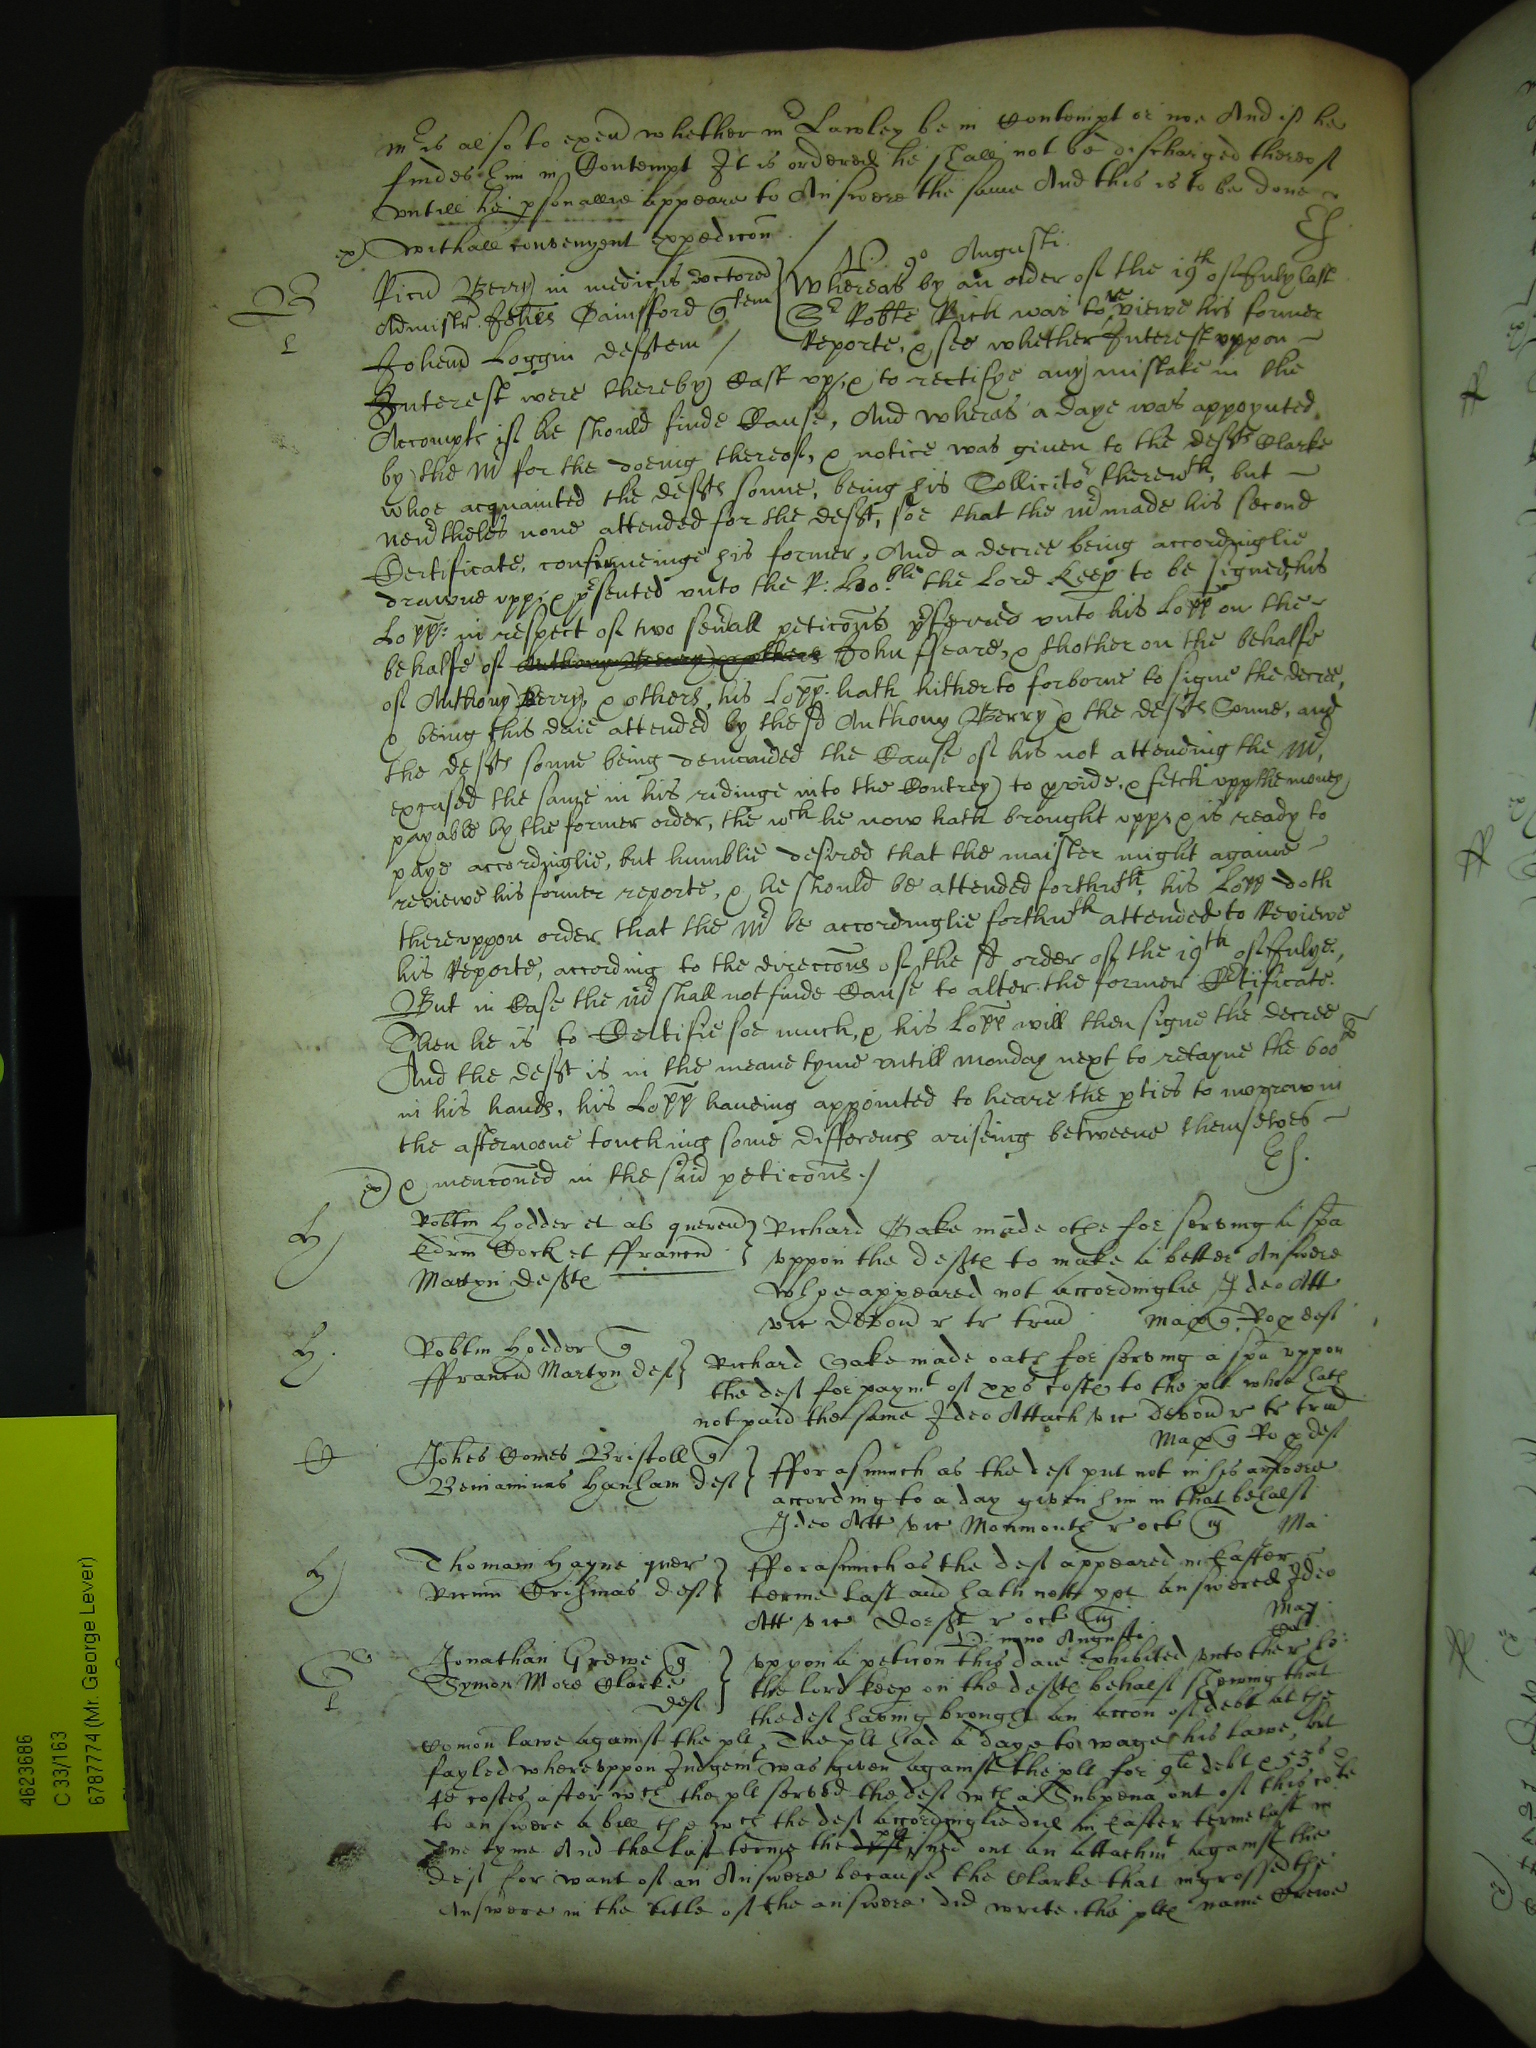 mr is also to expend whether mr Lawley be in Contempt or noe And if he
findes him in Contempt It is ordered he shall not be discharged thereof
vntill he psonallie appeare to Answere the same And this is to be done
ex) withall convenyent expedicon /
9o Augusti
B Ricu Berry in medicis doctorem
Admistr Johes Gainsford qtem
L Johem Loggin defftem /
Whereas by an order of the 19th of July last
Sr Robte Rich was to reviewe his former
Reporte, & see whether Interest vppon
Interest were thereby Cast vp, & to rectifye any mistake in the
Accompts if he should finde Cause, And wheras a daye was appoynted
by the Mr for the doeing thereof, & notice was given to the deffts Clarke
whoe acquainted the deffts sonne, being his Sollicitor therewth, but
neutheles none attended for the defft, soe that the mr made his second
Certificate, confirmeinge his former, And a decree being accordinglie
drawne vpp, & psented vnto the R: Hoble the Lord Keep to be signed, his
Lopp: in respect of two seuall peticons pferred vnto his Lopp on the
behalfe of John ffeard, & thother on the behalfe
of Anthony Berry, & others, his Lopp hath hitherto forborne to signe the decree,
& being this daie attended by the sd Anthony Berry & the deffts Sonne, and
the deffts sonne being demanded the Cause of his not attending the Mr,
excused the same in his ridinge into the Contrey to pvide, & fetch vpp the money
payable by the former order, the wch he now hath brought vpp, & is ready to
paye accordinglie, but humblie desired that the maister might againe
reviewe his former reporte, & he should be attended forthwth, his Lopp doth
therevppon order that the Mr be accordinglie forthwth attended to Reviewe
his Reporte, according to the direccons of the sd order of the 19th of Julye,
But in Case the mr shall not finde Cause to alter the former Certificate.
Then he is to Certifie soe much, & his Lopp will then signe the decree
And the defft is in the meane tyme vntill monday next to retayne the 600li
in his hands, his Lopp haueing appointed to heare the pties to morrow in
the afternoone touching some differencs ariseing betweene themselves
ex) & menconed in the said peticons /
H) Robtm Hodder et al querend
Edrm Cock et ffrancm
Martyn defftes
Richard Gake made othe for serving a spa
vppon the defftes to make a better Answere
whoe appeared not accordinglie Ideo Att
vic Devon r tr trin
H. Robtm Hodder q
ffrancm Martyn def
Richard Gake made oath for serving a spa vppon
the def for paymt of xxs costes to the plt whoe hath
not paid the same Ideo Attach vic Devon r tr trin
Johes Comes Bristoll q
Beniaminus Hanham def
fforasmuch as the def put not in his answere
according to a day given him in that behalf
Ideo Att vic Monmouth r oct
Ma
H) Thomam Hayne quer
Ricum Crismas def
fforasmuch as the def appeared in Easter
terme last and hath nott yet answered Ideo
Att vic Dorsst r oct
May
Jonathan Grewe q
L Symon More Clarke
def
Augusti
vppon a peticon this daie exhibited vnto the Lo:
the lord keep on the defftes behalf shewing that
the def having brought an accon of debt at the
Comon lawe against the plt, The plt had a daye to wage his lawe, but
fayled wherevppon Judgemt was given against the plt for debt & 53s
4d costes after wch the plt served the def wth a Subpena out of this cote
to answere a bill the wch the def accordinglie did in Easter terme last in
due tyme And the last terme the plt sued out an attachmt against the
def for want of an Answere because the Clarke that ingrossed the
Answere in the title of the answere did write the pltes name Crewe
4623686
C 33/163
6787774 (Mr. George Lever)